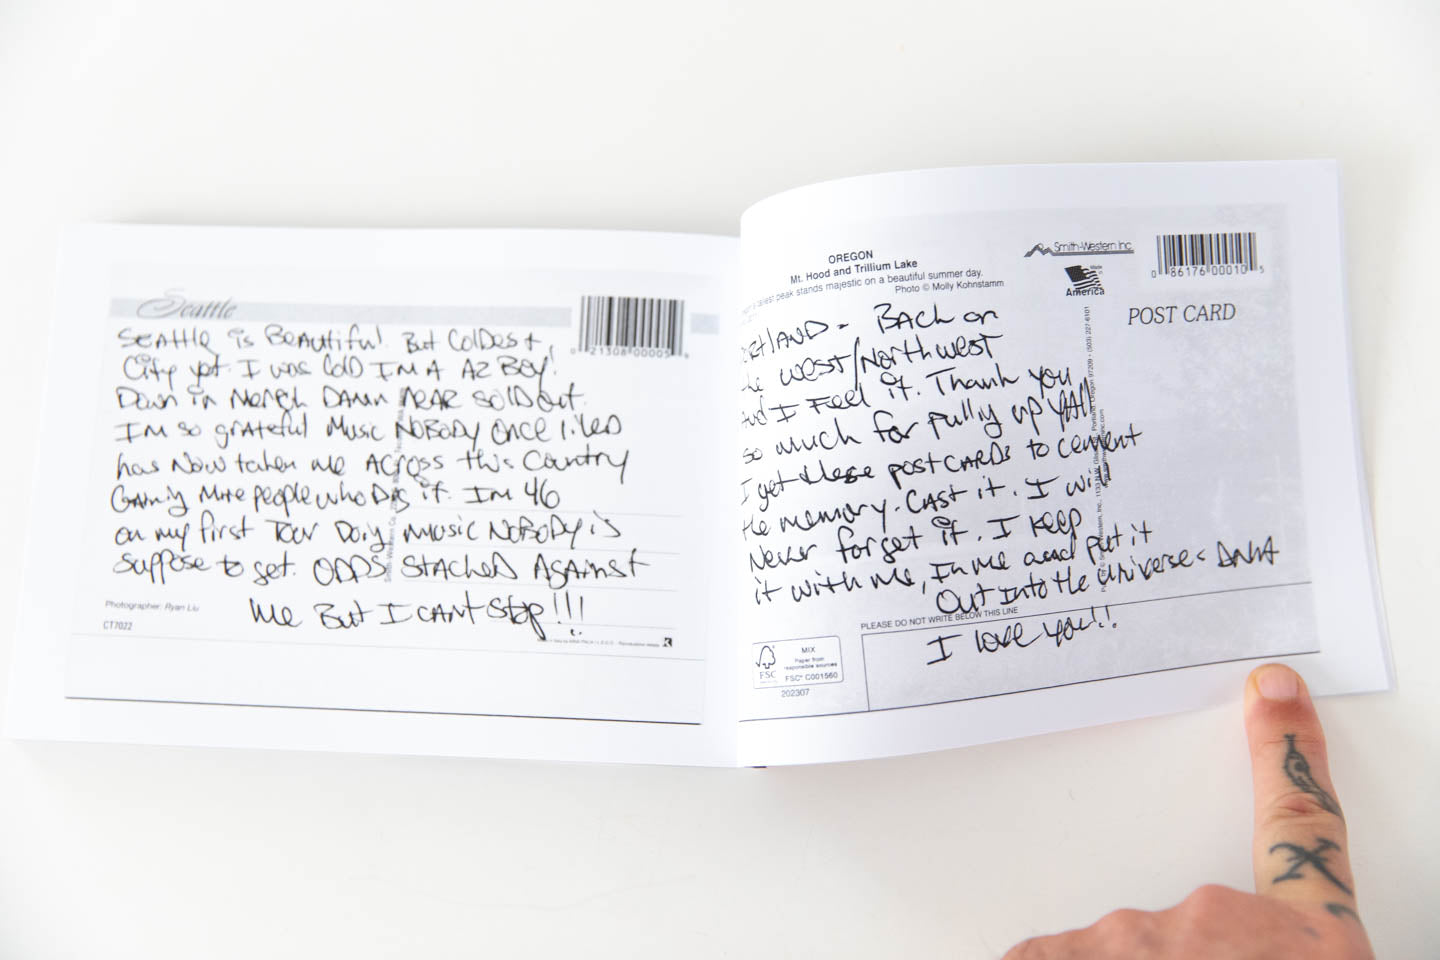 Seattle
0 21308 00005 9
SEATTLE is BEAUtiful. But Coldest
City yet. I was Cold I'M A AZ Boy!
Down in Merch DAMN NEAR SOLD out.
I'm so grateful Music NOBODY ONCE liked
has Now taken me ACROSS this Country
Gaining More people who Dig it. I'm 46
on my first Tour Doing music NoBoDy is
suppose to get. ODDS STACKED AGAINST
Me But I CANT Stop!!!
Photographer: Ryan Liu
CT7022
OREGON
Mt. Hood and Trillium Lake
tallest peak stands majestic on a beautiful summer day.
Photo © Molly Kohnstamm
Smith-Western Inc.
Made in
America
0 86176 00010 5
POST CARD
RTLAND - BACk on
the WEST/NorthWEST
And I Feel it. Thank you
so much for pulling up YAll
I get these postCARDs to cement
the memory. Cast it. I will
Never forget it. I Keep
it with me, In me and put it
Out Into the Universe - DNA
PLEASE DO NOT WRITE BELOW THIS LINE
I love you!!
FSC
MIX
Paper from
responsible sources
FSC® C001560
202307